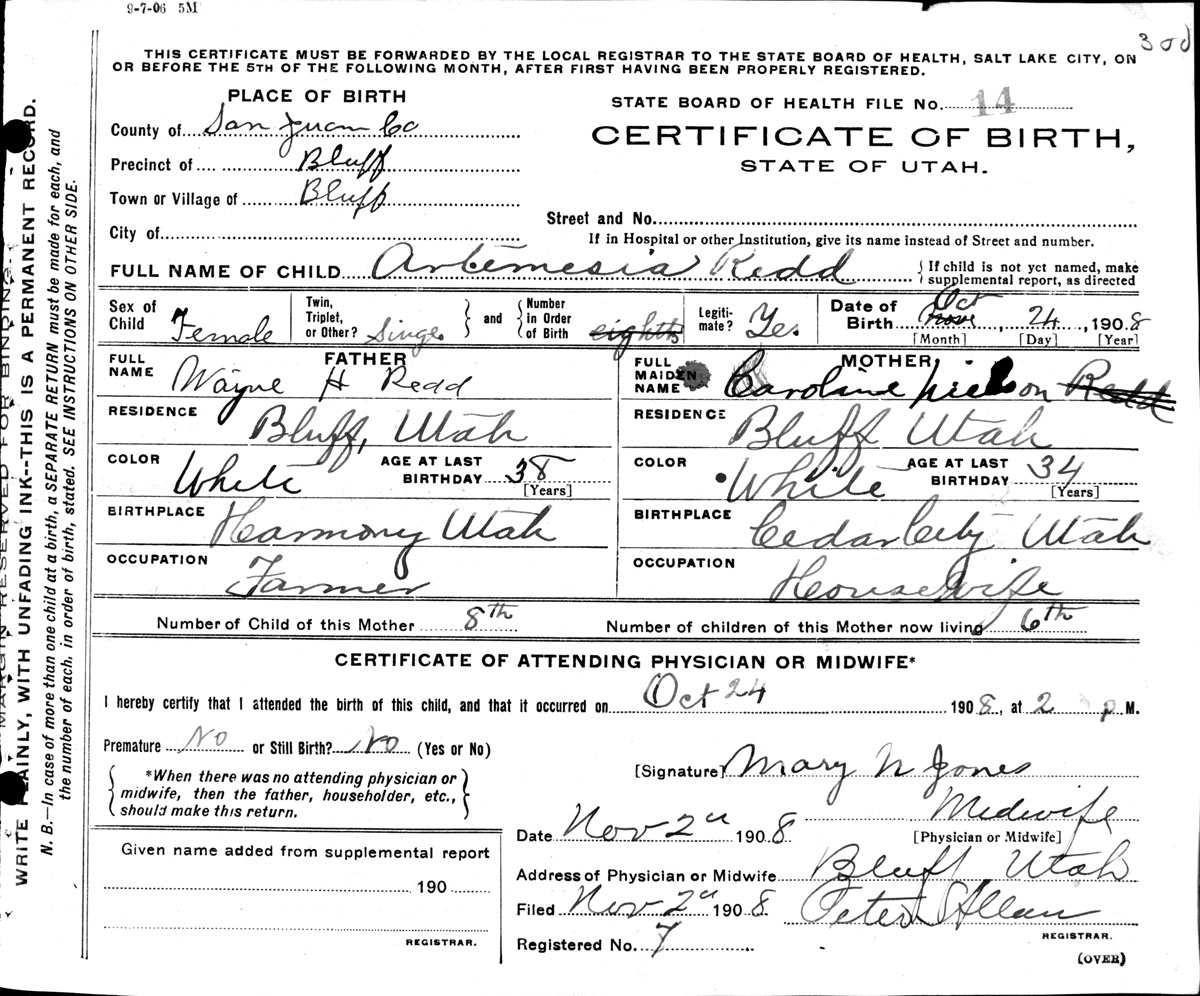 9-7-06 5M
300
THIS CERTIFICATE MUST BE FORWARDED BY THE LOCAL REGISTRAR TO THE STATE BOARD OF HEALTH, SALT LAKE CITY, ON
OR BEFORE THE 5TH OF THE FOLLOWING MONTH, AFTER FIRST HAVING BEEN PROPERLY REGISTERED.
PLACE OF BIRTH
County of San Juan Co
Precinct of Bluff
Town or Village of Bluff
City of
STATE BOARD OF HEALTH FILE No. 14
CERTIFICATE OF BIRTH,
STATE OF UTAH.
Street and No.
If in Hospital or other Institution, give its name instead of Street and number.
FULL NAME OF CHILD Artemesia Redd
If child is not yet named, make
supplemental report, as directed
Sex of Child Female
Twin, Triplet, or Other? Singe
and
Number in Order of Birth eighth
Legiti-mate? Yes
Date of Birth Oct Nov, 24, 1908
[Month] [Day] [Year]
FATHER
FULL NAME Wayne H Redd
RESIDENCE Bluff, Utah
COLOR White AGE AT LAST BIRTHDAY 38 [Years]
BIRTHPLACE Harmony Utah
OCCUPATION Farmer
MOTHER
FULL MAIDEN NAME Caroline Nielson Redd
RESIDENCE Bluff Utah
COLOR White AGE AT LAST BIRTHDAY 34 [Years]
BIRTHPLACE Cedar City Utah
OCCUPATION Housewife
Number of Child of this Mother 8th Number of children of this Mother now living 6th
CERTIFICATE OF ATTENDING PHYSICIAN OR MIDWIFE*
I hereby certify that I attended the birth of this child, and that it occurred on Oct 24 1908, at 2 p M.
Premature No or Still Birth? No (Yes or No)
*When there was no attending physician or
midwife, then the father, householder, etc.,
should make this return.
Given name added from supplemental report
190
REGISTRAR.
[Signature] Mary N Jones
Midwife
Date Nov 2nd 1908 [Physician or Midwife]
Address of Physician or Midwife Bluff Utah
Filed Nov 2nd 1908 Peter Allan
REGISTRAR.
Registered No. 7
(OVER)
MARGIN RESERVED FOR BINDING
WRITE PLAINLY, WITH UNFADING INK--THIS IS A PERMANENT RECORD.
N. B.—In case of more than one child at a birth, a SEPARATE RETURN must be made for each, and
the number of each, in order of birth, stated. SEE INSTRUCTIONS ON OTHER SIDE.